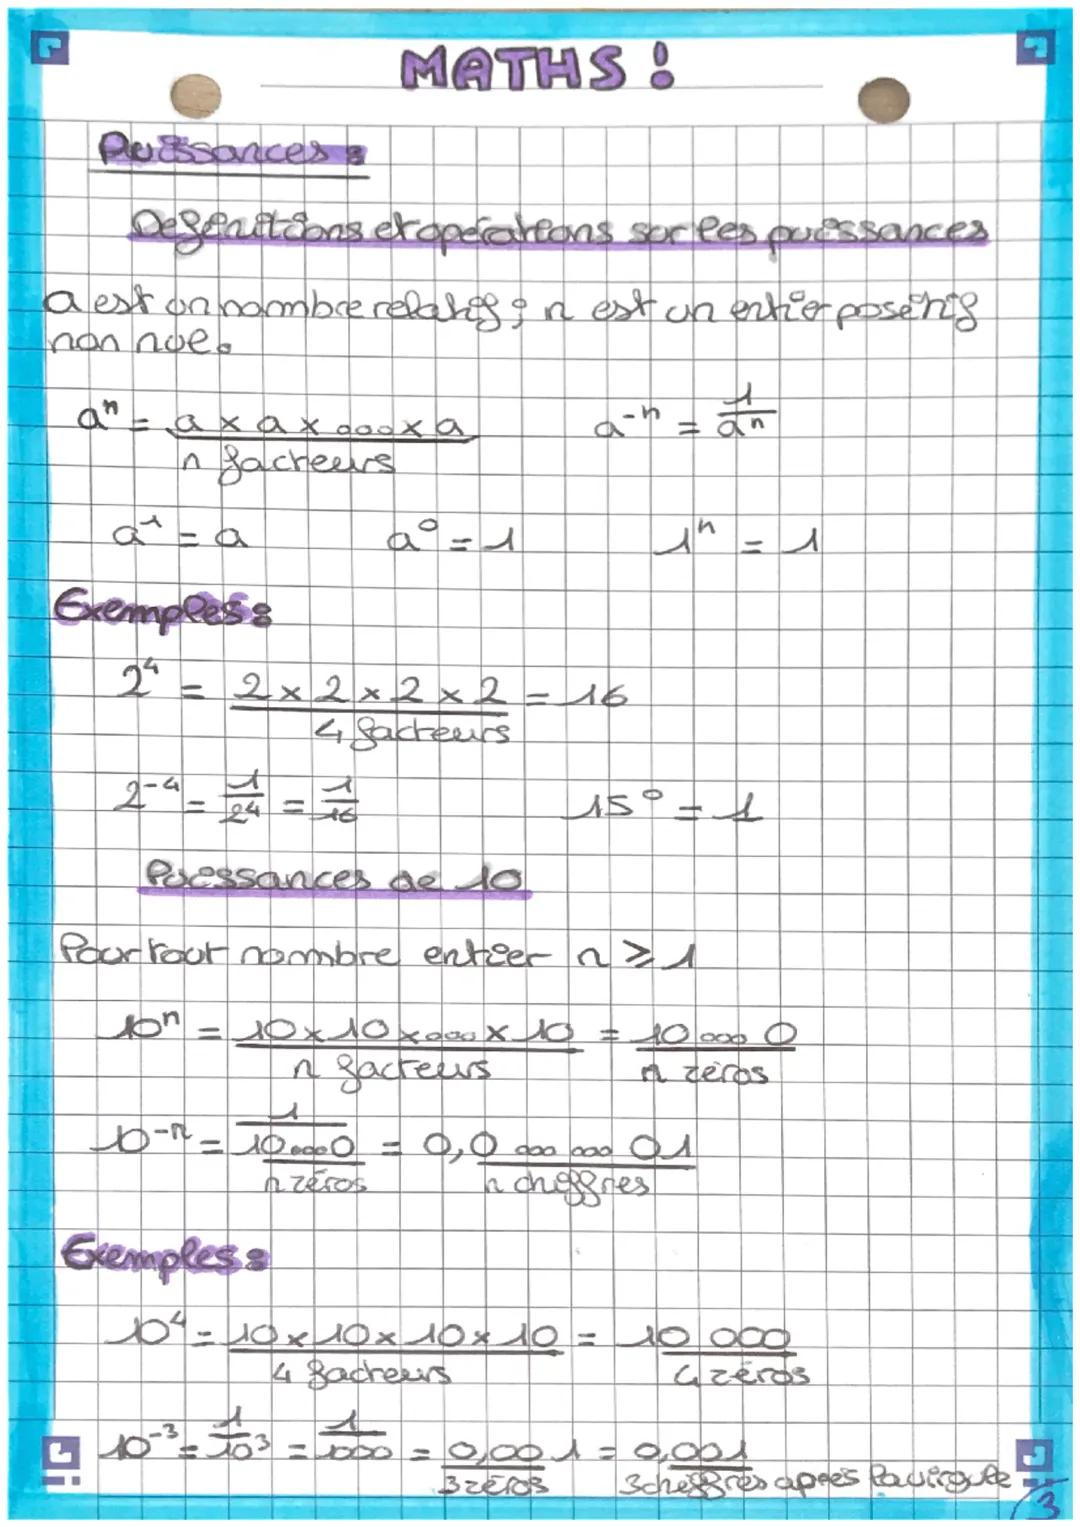 MATHS !
Puissances :
Définitions et opérations sur les puissances
a est un nombre relatif ; n est un entier positif
non nul.
aⁿ = a x a x ... x a a⁻ⁿ = 1/aⁿ
n facteurs
a¹ = a a⁰ = 1 1ⁿ = 1
Exemples :
2⁴ = 2 x 2 x 2 x 2 = 16
4 facteurs
2⁻⁴ = 1/2⁴ = 1/16 15⁰ = 1
Puissances de 10
Pour tout nombre entier n ⩾ 1
10ⁿ = 10 x 10 x ... x 10 = 10 ... 0
n facteurs n zéros
10⁻ⁿ = 1/10...0 = 0,0 ... ... 01
n zéros n chiffres
Exemples :
10⁴ = 10 x 10 x 10 x 10 = 10 000
4 facteurs 4 zéros
10⁻³ = 1/10³ = 1/1000 = 0,001 = 0,001
3 zéros 3 chiffres après la virgule
/3